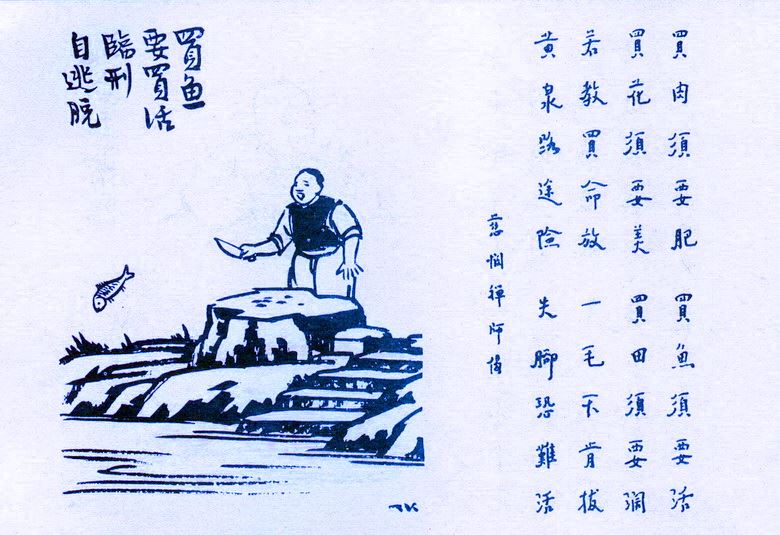 買魚
要買活
臨刑
自逃脫
買肉須要肥 買魚須要活
買花須要美 買田須要濶
若教買命放 一毛不肯拔
黃泉路途險 失腳恐難活
慈憫禪師偈
TK